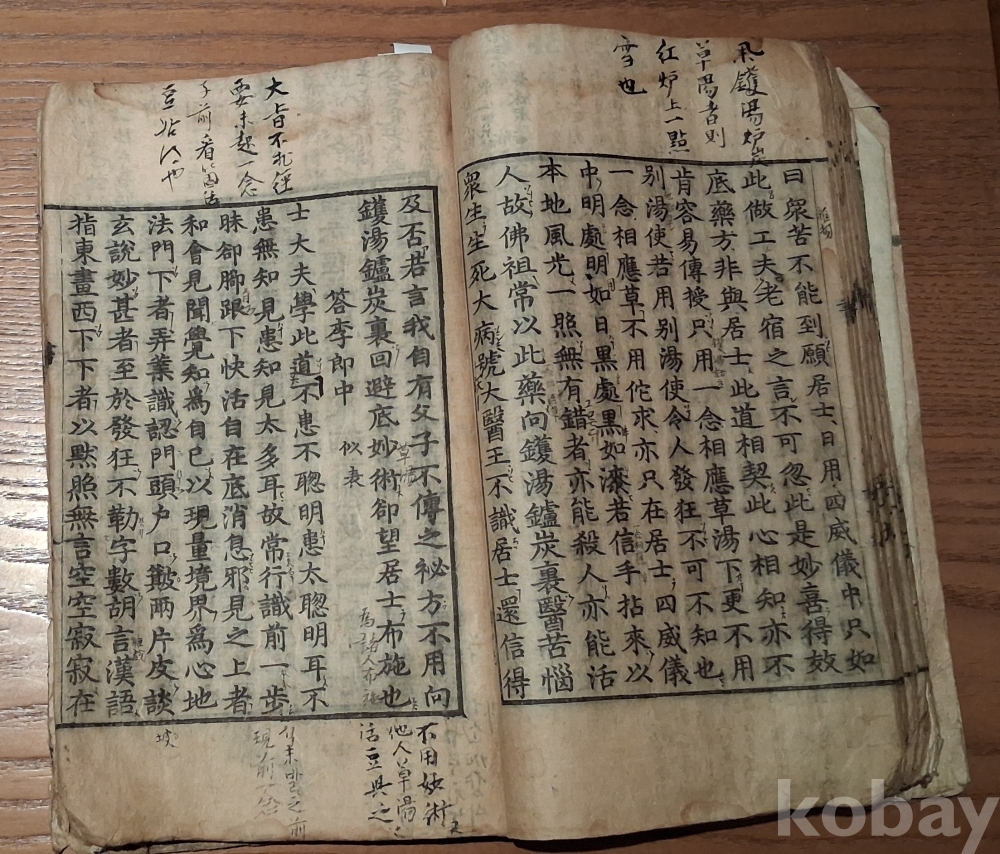 鑊湯炉炭
草湯者則
紅炉上一點
雪也
曰衆苦不能到願居士日用四威儀中只如
此做工夫老宿之言不可忽此是妙喜得效
底藥方非與居士此道相契此心相知亦不
肯容易傳授只用一念相應草湯下更不用
别湯使若用别湯使令人發狂不可不知也
一念相應草不用佗求亦只在居士四威儀
中明處明如日黒處黒如漆若信手拈來以
本地風光一照無有錯者亦能殺人亦能活
人故佛祖常以此藥向鑊湯鑪炭裏醫苦惱
衆生生死大病號大醫王不識居士還信得
大旨不
要未起一念
前看
及否若言我自有父子不傳之祕方不用向
鑊湯鑪炭裏回避底妙術卻望居士布施也
荅李郎中 似表
士大夫學此道不患不聦明患太聦明耳不
患無知見患知見太多耳故常行識前一步
昧卻脚跟下快活自在底消息邪見之上者
和會見聞覺知爲自己以現量境界爲心地
法門下者弄業識認門頭户口簸兩片皮談
玄說妙甚者至於發狂不勒字數胡言漢語
指東畫西下下者以默照無言空空寂寂在
不用妙術
他人草湯
現前一念
kobay